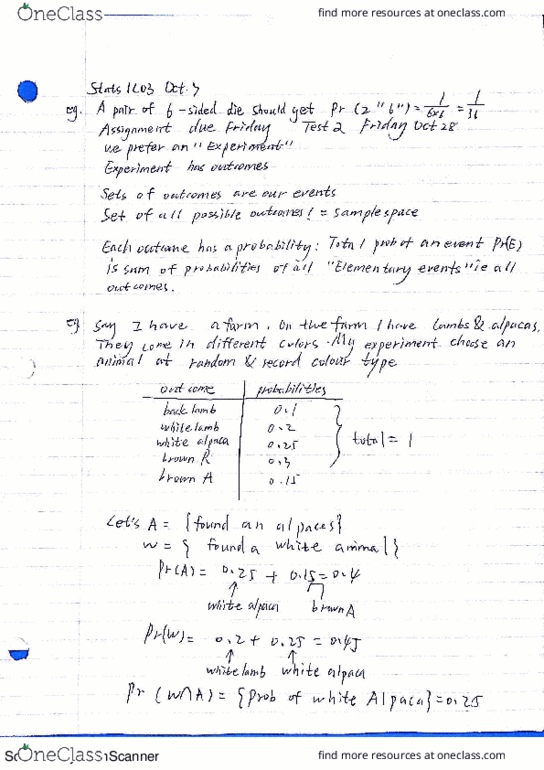 OneClass
find more resources at oneclass.com
Stats 1L03 Oct. 7
eg. A pair of 6-sided die should get Pr (2 "6") = 1/6x6 = 1/36
Assignment due Friday Test 2 Friday Oct 28
we prefer an "Experiment"
Experiment has outcomes
Sets of outcomes are our events
Set of all possible outcomes! = sample space
Each outcome has a probability: Total prob of an event Pr(E)
is sum of probabilities of all "Elementary events" ie all
outcomes.
eg Say I have a farm. On the farm I have lambs & alpacas,
They come in different colors. My experiment choose an
animal at random & record colour type
outcome probabilities
back lamb 0.1
white lamb 0.2
white alpaca 0.25 total = 1
brown R 0.3
brown A 0.15
Let's A = {found an alpacas}
W = { found a white animal}
Pr(A) = 0.25 + 0.15 = 0.4
white alpaca brown A
Pr(W) = 0.2 + 0.25 = 0.45
white lamb white alpaca
Pr (W∩A) = {Prob of white Alpaca} = 0.25
OneClass
Scanner
find more resources at oneclass.com